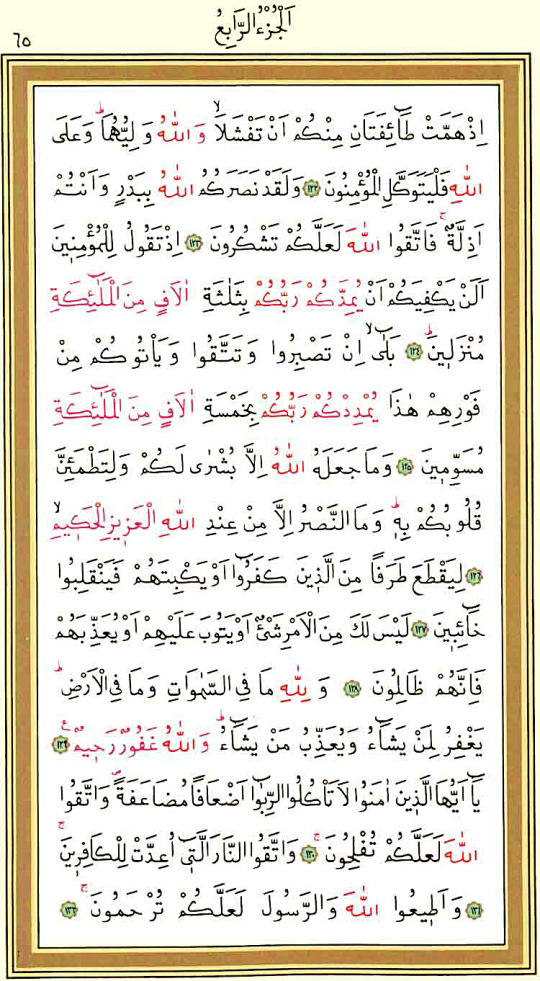 اَلْجُزْءُ الرَّابِعُ
٦٥
اِذْ هَمَّتْ طَٓائِفَتَانِ مِنْكُمْ اَنْ تَفْشَلَاۙ وَاللّٰهُ وَلِيُّهُمَاۜ وَعَلَى
اللّٰهِ فَلْيَتَوَكَّلِ الْمُؤْمِنُونَ ﴿١٢٢﴾ وَلَقَدْ نَصَرَكُمُ اللّٰهُ بِبَدْرٍ وَاَنْتُمْ
اَذِلَّةٌۚ فَاتَّقُوا اللّٰهَ لَعَلَّكُمْ تَشْكُرُونَ ﴿١٢٣﴾ اِذْ تَقُولُ لِلْمُؤْمِنِينَ
اَلَنْ يَكْفِيَكُمْ اَنْ يُمِدَّكُمْ رَبُّكُمْ بِثَلٰثَةِ اٰلَافٍ مِنَ الْمَلٰٓئِكَةِ
مُنْزَلِينَۜ ﴿١٢٤﴾ بَلٰٓىۙ اِنْ تَصْبِرُوا وَتَتَّقُوا وَيَأْتُوكُمْ مِنْ
فَوْرِهِمْ هٰذَا يُمْدِدْكُمْ رَبُّكُمْ بِخَمْسَةِ اٰلَافٍ مِنَ الْمَلٰٓئِكَةِ
مُسَوِّمِينَ ﴿١٢٥﴾ وَمَا جَعَلَهُ اللّٰهُ اِلَّا بُشْرٰى لَكُمْ وَلِتَطْمَئِنَّ
قُلُوبُكُمْ بِهٖۜ وَمَا النَّصْرُ اِلَّا مِنْ عِنْدِ اللّٰهِ الْعَزِيزِ الْحَكِيمِۙ
﴿١٢٦﴾ لِيَقْطَعَ طَرَفًا مِنَ الَّذِينَ كَفَرُٓوا اَوْ يَكْبِتَهُمْ فَيَنْقَلِبُوا
خَٓائِبِينَ ﴿١٢٧﴾ لَيْسَ لَكَ مِنَ الْاَمْرِ شَيْءٌ اَوْ يَتُوبَ عَلَيْهِمْ اَوْ يُعَذِّبَهُمْ
فَاِنَّهُمْ ظَالِمُونَ ﴿١٢٨﴾ وَلِلّٰهِ مَا فِي السَّمٰوَاتِ وَمَا فِي الْاَرْضِۜ
يَغْفِرُ لِمَنْ يَشَٓاءُ وَيُعَذِّبُ مَنْ يَشَٓاءُۜ وَاللّٰهُ غَفُورٌ رَحِيمٌ۟ ﴿١٢٩﴾
يَٓا اَيُّهَا الَّذِينَ اٰمَنُوا لَا تَأْكُلُوا الرِّبٰٓوا اَضْعَافًا مُضَاعَفَةًۖ وَاتَّقُوا
اللّٰهَ لَعَلَّكُمْ تُفْلِحُونَۚ ﴿١٣٠﴾ وَاتَّقُوا النَّارَ الَّتِٓي اُعِدَّتْ لِلْكَافِرِينَۚ
﴿١٣١﴾ وَاَطِيعُوا اللّٰهَ وَالرَّسُولَ لَعَلَّكُمْ تُرْحَمُونَۚ ﴿١٣٢﴾